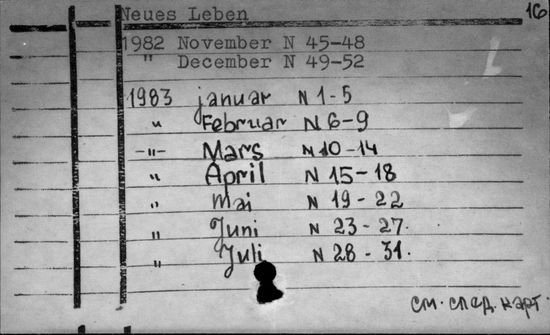 Neues Leben 16
1982 November N 45-48
" December N 49-52
1983 januar N 1-5
" Februar N 6-9
-"- Mars N 10-14
" April N 15-18
" Mai N 19-22
" Juni N 23-27.
" Juli N 28-31.
см. след. карт.